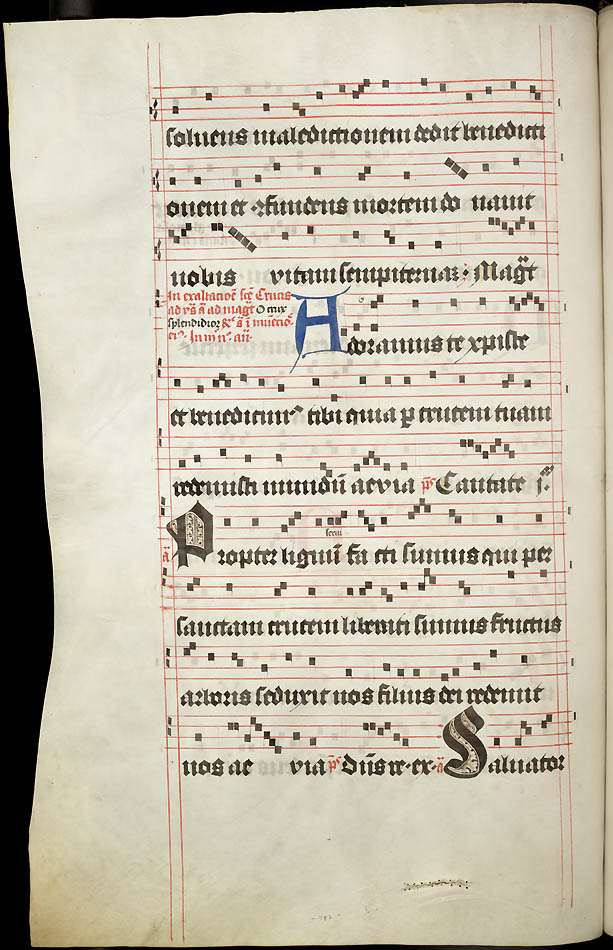 soluens maledictionem dedit benedicti
onem et ꝯfundens mortem do nauit
nobis vitam sempiternaz: Magt̄
In exaltatiōe scē Crucis
ad vs̄ ā ad magt̄ O crux
splendidior &c ā ī inuētiō
Adoramus te xpiste
et benedicimꝰ tibi quia ꝑ crucem tuam
redemisti mundū aevia ps̄ Cantate j
seruī
ā Propter lignū fa cti sumus qui per
sanctam crucem liberati sumus fructus
arboris seduxit nos filius dei redemit
nos ae via ps̄ Dūs re. ex. ā Saluator